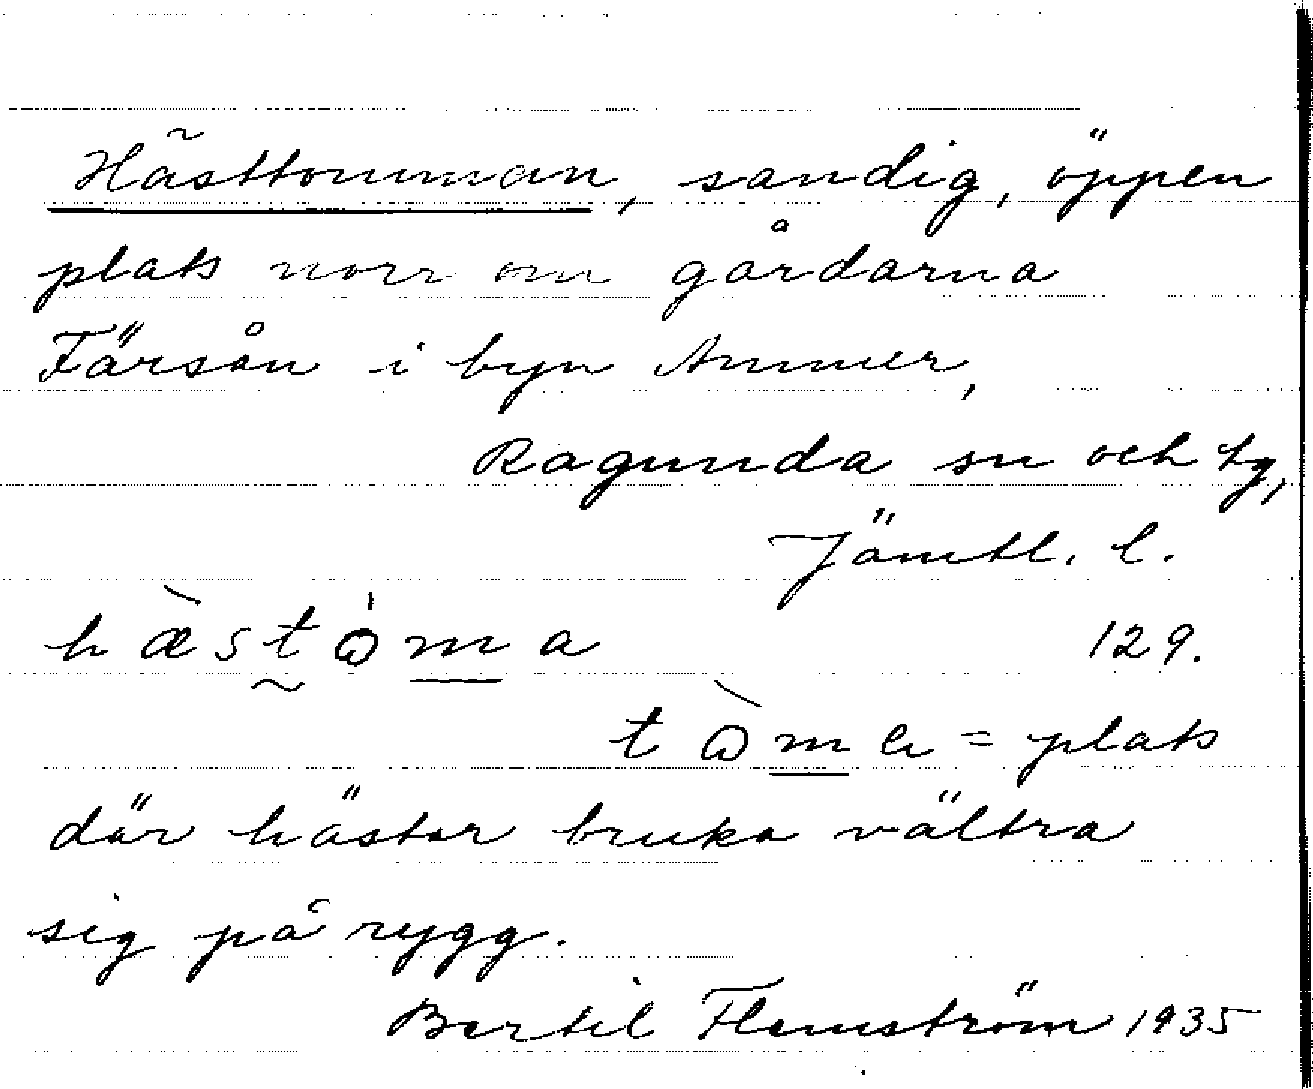 Hästtomman, sandig, öppen
plats norr om gårdarna
Färsån i byn Ammer,
Ragunda sn och tg,
Jämtl. l.
hæ̀stòma 129.
tòma = plats
där hästar bruka vältra
sig på rygg.
Bertil Flemström 1935